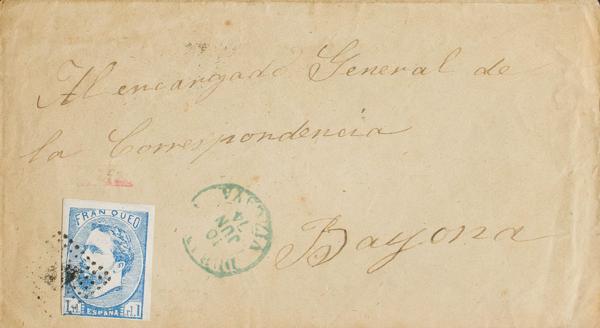 Al encargado General de
la Correspondencia
Bayona
10
JUN
74
FRANQUEO
ESPAÑA